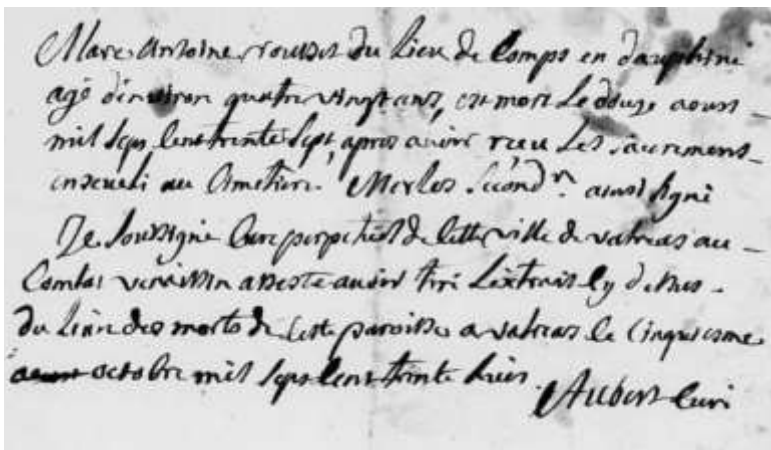 Marc Antoine rousset du Lieu de Comps en dauphiné
agé d'environ quatre vingt ans, est mort Le douze aoust
mil sept cent trente sept, apres avoir receu Les sacremens
enseveli au Cimetiere. Merles Second.re ainsi signé
Je soussigné Curé perpetuel de cette ville de valreas au
Comtat venaissin atteste avoir tiré L'extrait cy dessus
du Livre des morts de cette paroisse a valreas le cinquieme
octobre mil sept cent trente huit.
Aubert Curé